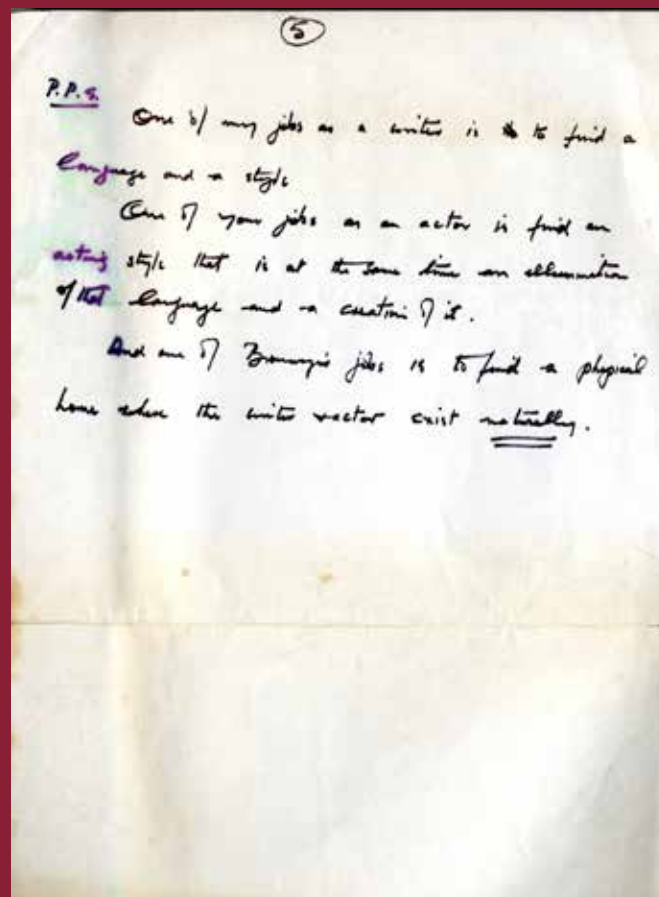 5
P.P.S.
One of my jobs as a writer is to find a
language and a style
One of your jobs as an actor is find an
acting style that is at the same time an illumination
of that language and a creation of it.
And one of jobs is to find a physical
home where the writer + actor exist naturally.